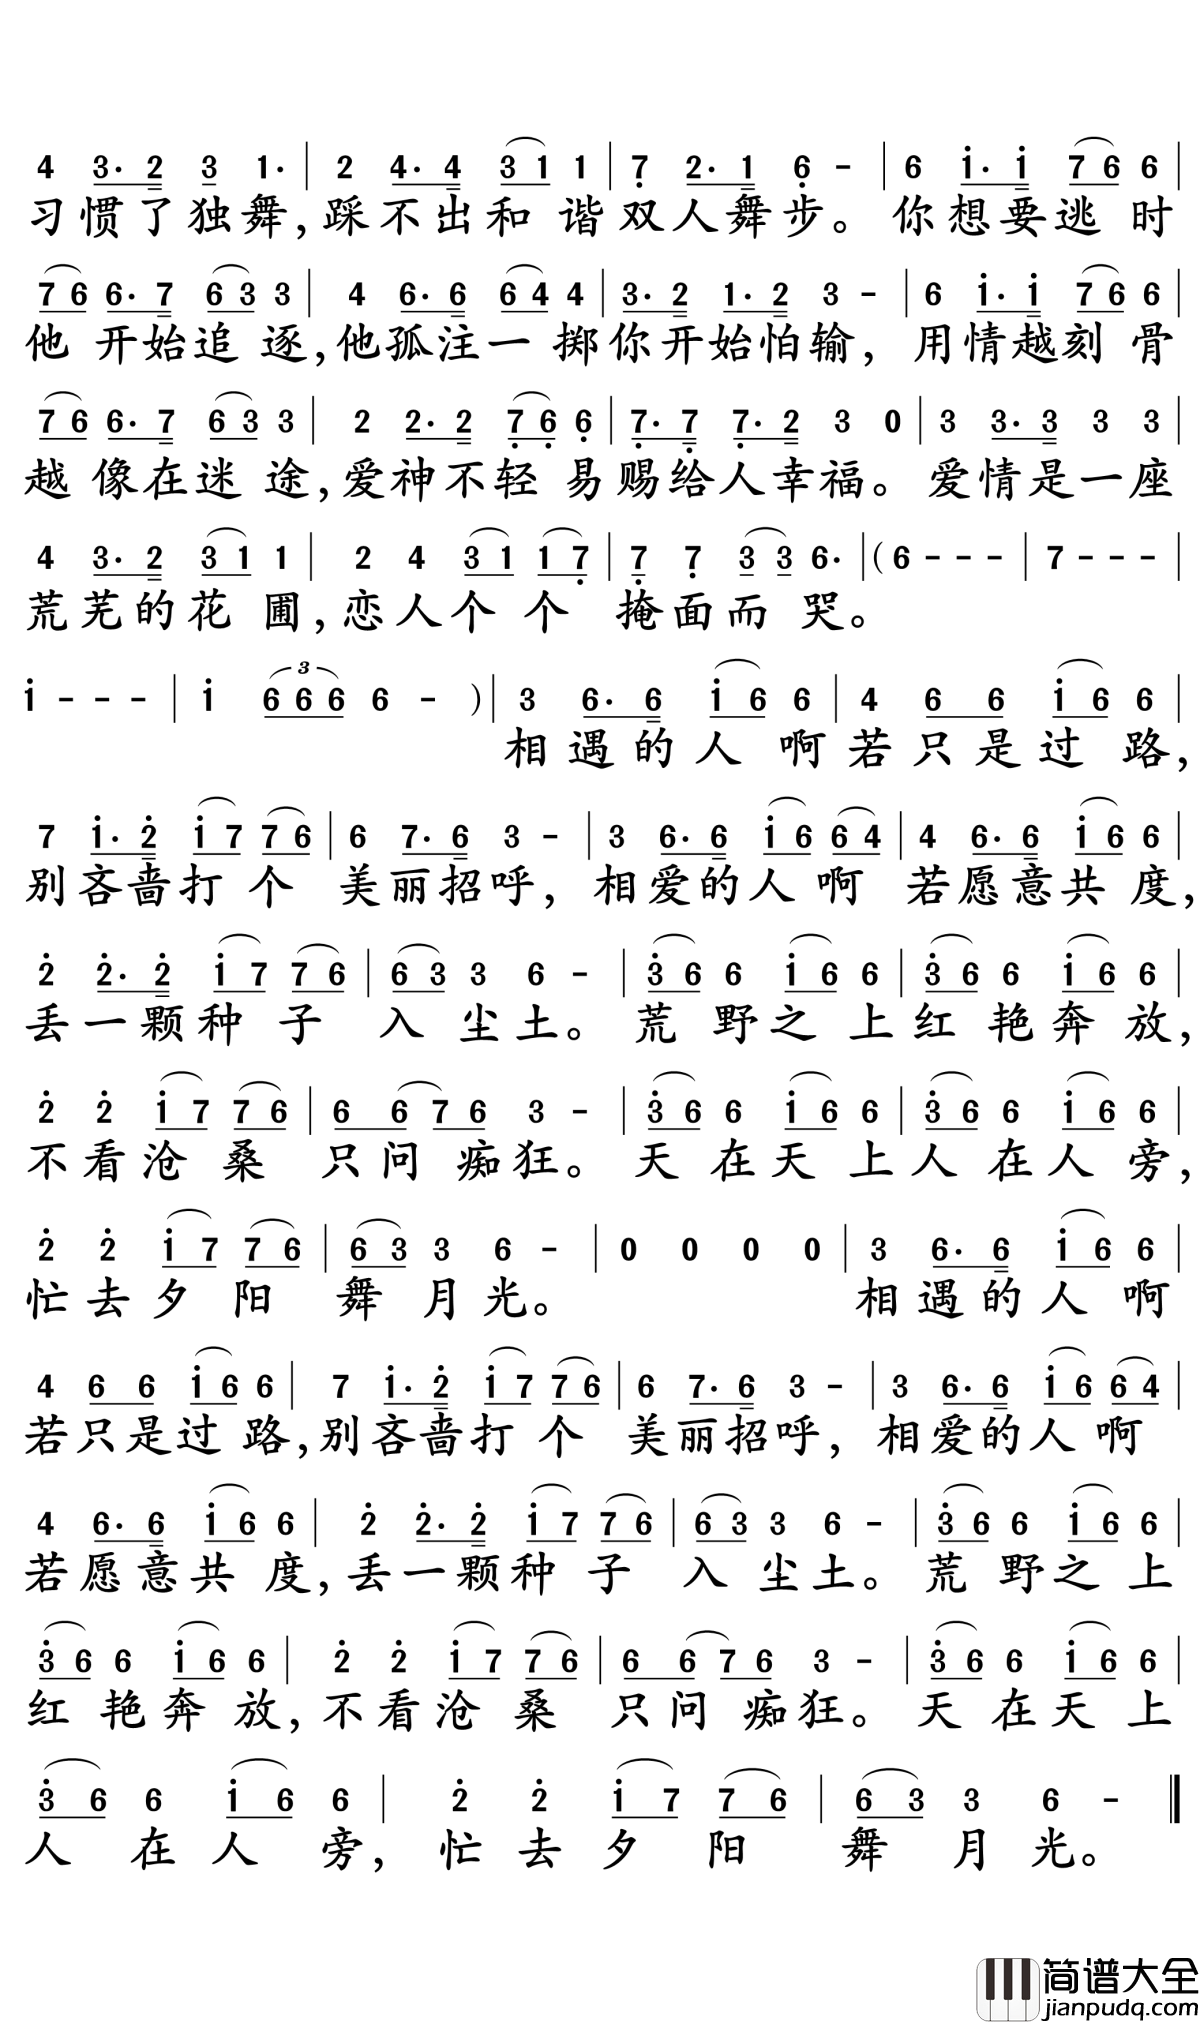 4 3· 2 3 1· | 2 4· 4 3 1 1 | 7 2· 1 6 - | 6 i· i 7 6 6 |
习惯了独舞,踩不出和谐双人舞步。你想要逃时
7 6 6· 7 6 3 3 | 4 6· 6 6 4 4 | 3· 2 1· 2 3 - | 6 i· i 7 6 6 |
他开始追逐,他孤注一掷你开始怕输,用情越刻骨
7 6 6· 7 6 3 3 | 2 2· 2 7 6 6 | 7· 7 7· 2 3 0 | 3 3· 3 3 3 |
越像在迷途,爱神不轻易赐给人幸福。爱情是一座
4 3· 2 3 1 1 | 2 4 3 1 1 7 | 7 7 3 3 6· | (6 - - - | 7 - - - |
荒芜的花圃,恋人个个掩面而哭。
i - - - | i 3 6 6 6 6 - ) | 3 6· 6 i 6 6 | 4 6 6 i 6 6 |
相遇的人啊若只是过路,
7 i· 2 i 7 7 6 | 6 7· 6 3 - | 3 6· 6 i 6 6 4 | 4 6· 6 i 6 6 |
别吝啬打个美丽招呼,相爱的人啊若愿意共度,
2 2· 2 i 7 7 6 | 6 3 3 6 - | 3 6 6 i 6 6 | 3 6 6 i 6 6 |
丢一颗种子入尘土。荒野之上红艳奔放,
2 2 i 7 7 6 | 6 6 7 6 3 - | 3 6 6 i 6 6 | 3 6 6 i 6 6 |
不看沧桑只问痴狂。天在天上人在人旁,
2 2 i 7 7 6 | 6 3 3 6 - | 0 0 0 0 | 3 6· 6 i 6 6 |
忙去夕阳舞月光。相遇的人啊
4 6 6 i 6 6 | 7 i· 2 i 7 7 6 | 6 7· 6 3 - | 3 6· 6 i 6 6 4 |
若只是过路,别吝啬打个美丽招呼,相爱的人啊
4 6· 6 i 6 6 | 2 2· 2 i 7 7 6 | 6 3 3 6 - | 3 6 6 i 6 6 |
若愿意共度,丢一颗种子入尘土。荒野之上
3 6 6 i 6 6 | 2 2 i 7 7 6 | 6 6 7 6 3 - | 3 6 6 i 6 6 |
红艳奔放,不看沧桑只问痴狂。天在天上
3 6 6 i 6 6 | 2 2 i 7 7 6 | 6 3 3 6 - ‖
人在人旁,忙去夕阳舞月光。
简谱大全
jianpudq.com